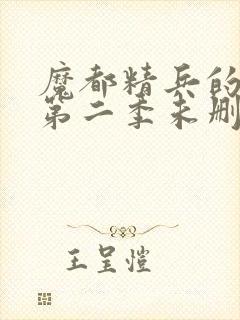 魔都精兵的
第二季未删
王呈愷